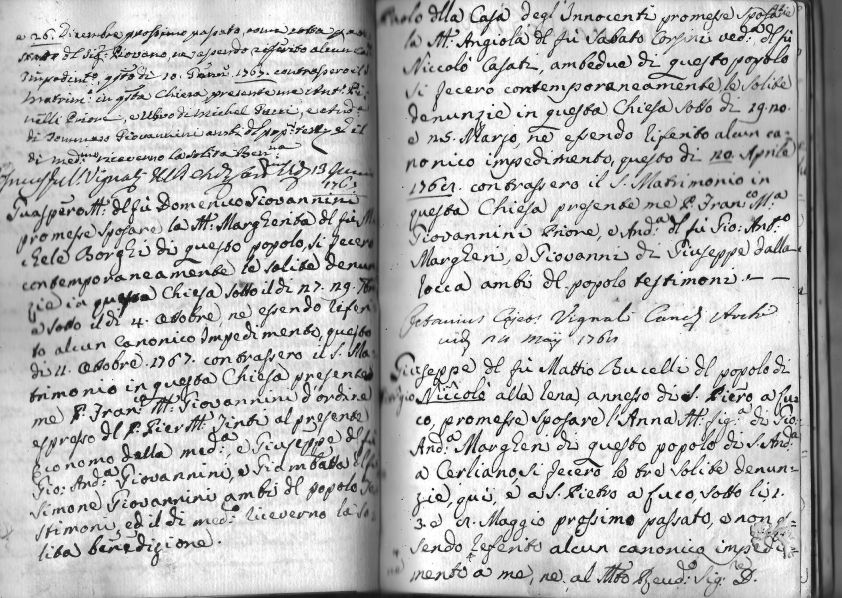 e 26. Dicembre prossimo passato, come
del Sig: Piovano, ne essendo riferito alcun Ca:
Impedim:to, q:to dì 10. 1767. contrassero il S.
Matrim: in q:ta Chiesa, presente me Ant:
nelli Priore, e di Michel
di Tommaso Giovannini ambi del pop:
dì med:mo riceverno la solita Ben:
Vignali 13
1763
Guaspero M:a del fù Domenico Giovannini
promesse sposare la M:a Margherita del fù Mi
chele Borghi di questo popolo, si fecero
contemporaneamente le solite denun
zie in questa Chiesa sotto il dì 27. 29. 7bre
e sotto il dì 4. Ottobre, ne essendo riferi
to alcun canonico Impedimento, questo
dì 11. Ottobre 1767. contrassero il S. Ma
trimonio in questa Chiesa presente
me P. Fran:co M:a Giovannini d'ordine
espresso del P. Pier M:a al presente
Economo della med:a, e Giuseppe del fù
Gio: And:a Giovannini, e Gio: Batta del fù
Simone Giovannini ambi del popolo te
stimoni, ed il dì med:o riceverno la so
lita benedizione.
Paolo della Casa degl'Innocenti promesse sposare
la M:a Angiola del fù Sabato Corsini ved:a del fù
Niccolò Casati, ambedue di questo popolo
si fecero contemporaneamente le solite
denunzie in questa Chiesa sotto dì 19. 20.
e 25. Marzo, ne essendo riferito alcun ca-
nonico impedimento, questo dì 20. Aprile
176 contrassero il S. Matrimonio in
questa Chiesa presente me P. Fran:co M:a
Giovannini Priore, e And:a del fù Gio: Ant:o
Margheri, e Giovanni di Giuseppe dalla
Rocca ambi del popolo testimoni.
Octavius Vignali Canc: Archi
24 may 176
Giuseppe del fù Mattio Bucelli del popolo di
S. Niccolò alla Lena, annesso di S. Piero a fu
co, promesse sposare l'Anna M:a fig:a di Gio:
And:a Margheri di questo popolo di S. And:a
a Cerliano, si fecero le tre solite denun-
zie, quì, e a S. Pietro a fuco, sotto li 1.
3. e Maggio prossimo passato, e non es-
sendo referito alcun canonico impedi-
mento a me, ne al M:to Reveud:o Sig:e D.